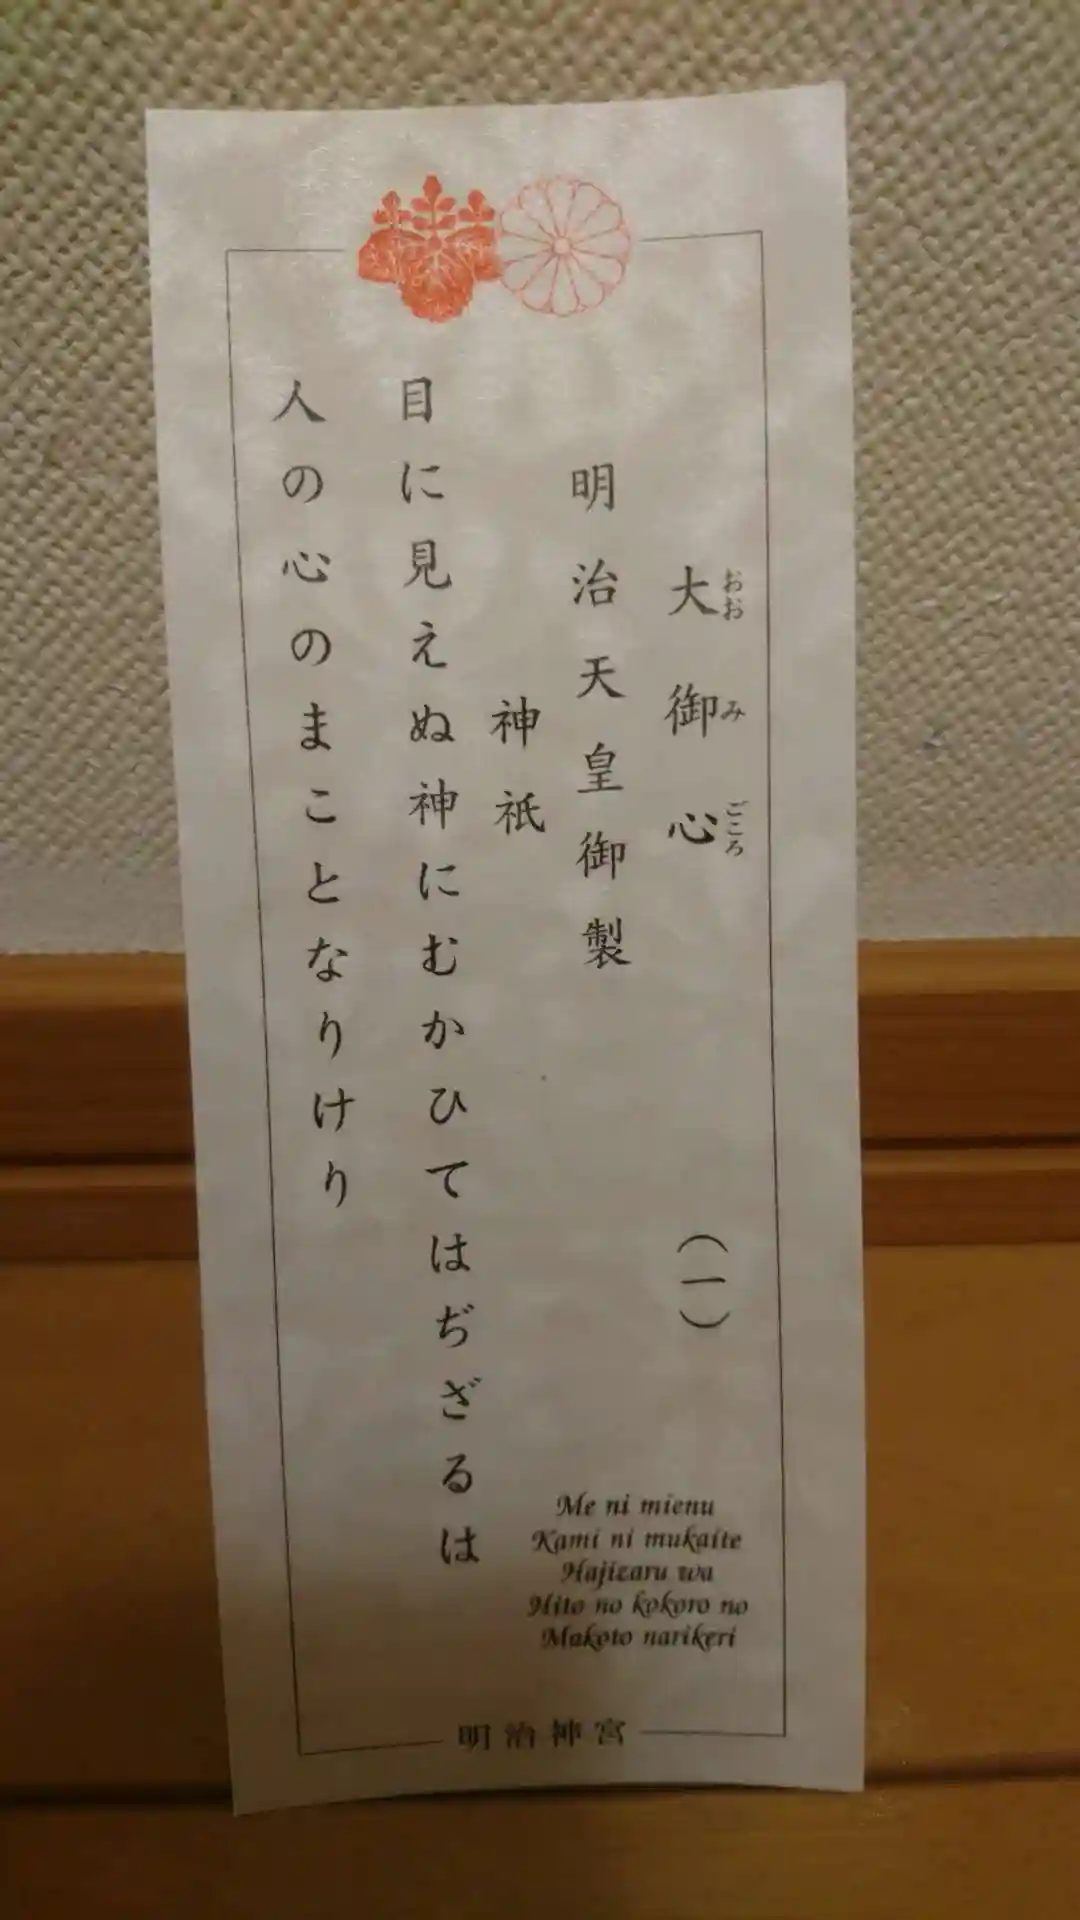 大御心 (一)
おお み ごころ
明治天皇御製
神祇
目に見えぬ神にむかひてはぢざるは
人の心のまことなりけり
Me ni mienu
Kami ni mukaite
Hajizaru wa
Hito no kokoro no
Makoto narikeri
明治神宮